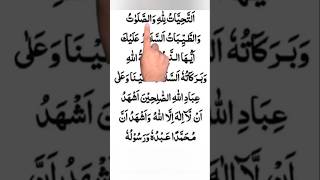 اَلتَّحِيَّاتُ لِلّٰهِ وَالصَّلَوٰتُ
وَالطَّيِّبَاتُ اَلسَّلَامُ عَلَيْكَ
اَيُّهَا اللهِ
وَبَرَكَاتُهٗ وَعَلٰى
عِبَادِ اللهِ الصّٰلِحِيْنَ اَشْهَدُ
اَنْ لَّآ اِلٰهَ اِلَّا اللهُ وَاَشْهَدُ اَنَّ
مُحَمَّدًا عَبْدُهٗ وَرَسُوْلُهٗ